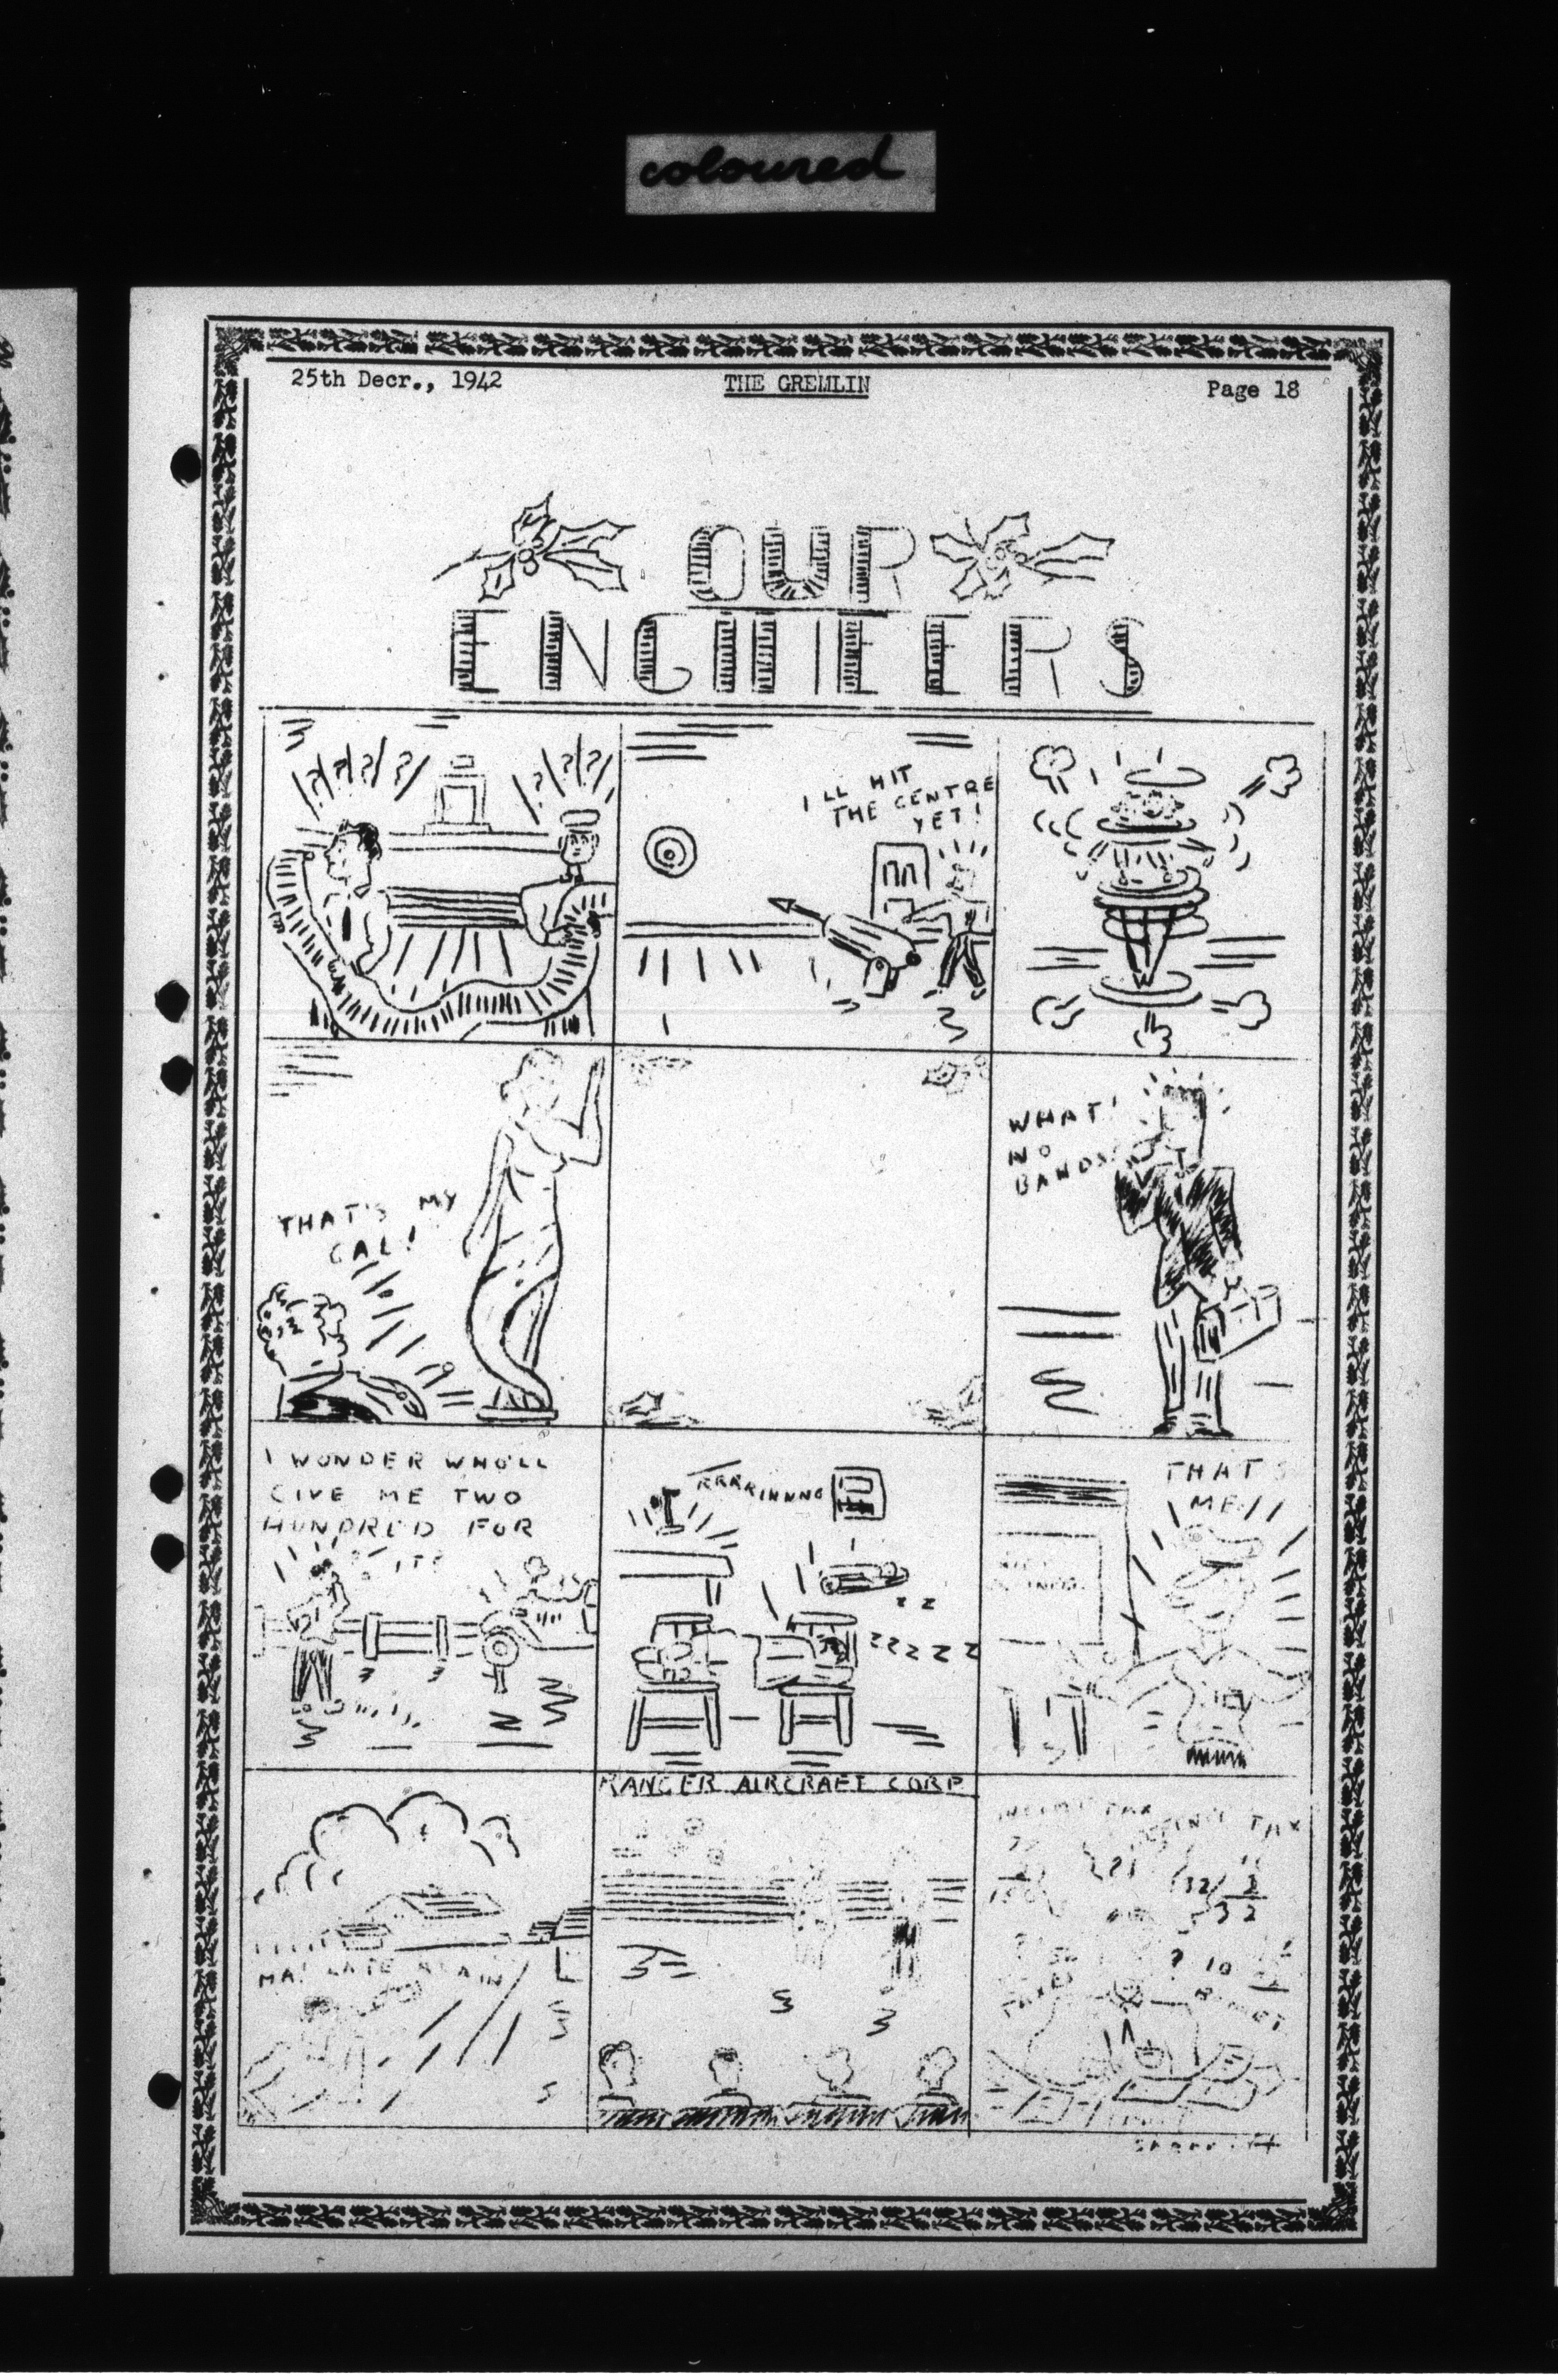 coloured
25th Decr., 1942
THE GREMLIN
Page 18
OUR
ENGINEERS
? ? ? ?
? ? ?
I LL HIT
THE CENTRE
YET!
THAT'S MY
GAL!
WHAT!
NO
BANDS?
I WONDER WHO'LL
GIVE ME TWO
HUNDRED FOR
IT?
RRRRINNNG
Z Z
Z Z Z Z Z
THAT'S
ME!!
RANGER AIRCRAFT CORP
LATE AGAIN
INCOME TAX
TAX
32
32
? 10
TAXES